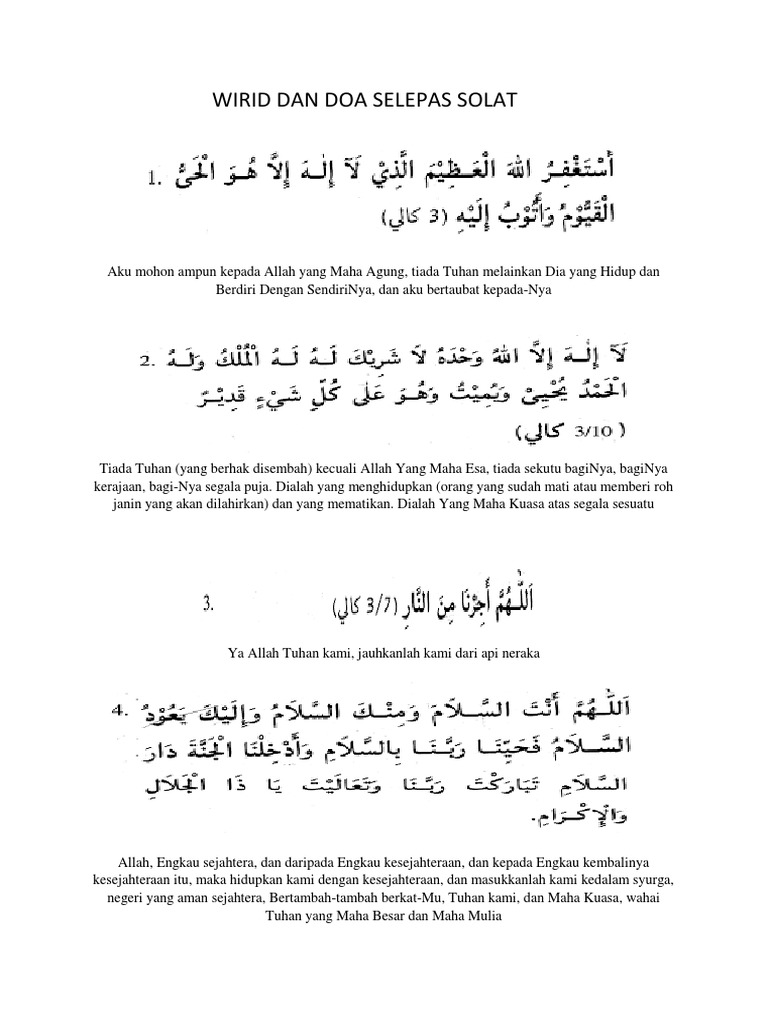 WIRID DAN DOA SELEPAS SOLAT
1. أَسْتَغْفِرُ اللهَ الْعَظِيْمَ الَّذِيْ لَآ إِلٰهَ إِلاَّ هُوَ الْحَيُّ
الْقَيُّوْمُ وَأَتُوْبُ إِلَيْهِ (3 كالي)
Aku mohon ampun kepada Allah yang Maha Agung, tiada Tuhan melainkan Dia yang Hidup dan
Berdiri Dengan SendiriNya, dan aku bertaubat kepada-Nya
2. لَآ إِلٰهَ إِلاَّ اللهُ وَحْدَهُ لاَ شَرِيْكَ لَهُ لَهُ الْمُلْكُ وَلَهُ
الْحَمْدُ يُحْيِيْ وَيُمِيْتُ وَهُوَ عَلٰى كُلِّ شَيْءٍ قَدِيْرٌ
(3/10 كالي)
Tiada Tuhan (yang berhak disembah) kecuali Allah Yang Maha Esa, tiada sekutu bagiNya, bagiNya
kerajaan, bagi-Nya segala puja. Dialah yang menghidupkan (orang yang sudah mati atau memberi roh
janin yang akan dilahirkan) dan yang mematikan. Dialah Yang Maha Kuasa atas segala sesuatu
3. اَللّٰهُمَّ أَجِرْنَا مِنَ النَّارِ (3/7 كالي)
Ya Allah Tuhan kami, jauhkanlah kami dari api neraka
4. اَللّٰهُمَّ أَنْتَ السَّلَامُ وَمِنْكَ السَّلَامُ وَإِلَيْكَ يَعُوْدُ
السَّلَامُ فَحَيِّنَا رَبَّنَا بِالسَّلَامِ وَأَدْخِلْنَا الْجَنَّةَ دَارَ
السَّلَامِ تَبَارَكْتَ رَبَّنَا وَتَعَالَيْتَ يَا ذَا الْجَلَالِ
وَالْإِكْرَامِ.
Allah, Engkau sejahtera, dan daripada Engkau kesejahteraan, dan kepada Engkau kembalinya
kesejahteraan itu, maka hidupkan kami dengan kesejahteraan, dan masukkanlah kami kedalam syurga,
negeri yang aman sejahtera, Bertambah-tambah berkat-Mu, Tuhan kami, dan Maha Kuasa, wahai
Tuhan yang Maha Besar dan Maha Mulia